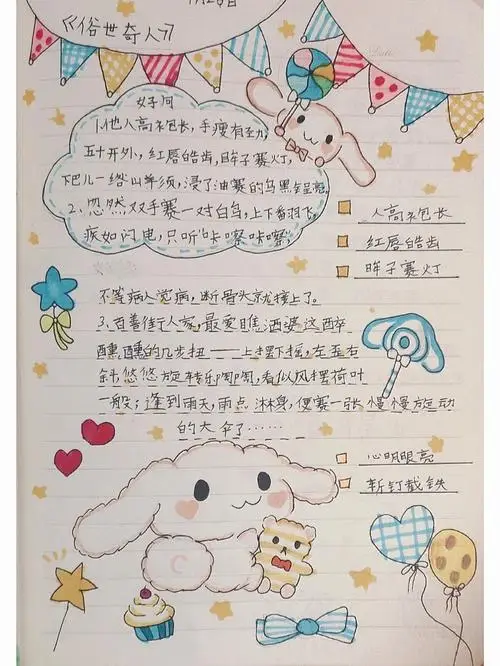 月20日
《俗世奇人》
好句
1.他人高袍长，手瘦有劲，
五十开外，红唇皓齿，眸子赛灯，
下巴儿一绺山羊须，浸了油赛的乌黑锃亮
2、忽然双手赛一对白鸟，上下番羽飞，
疾如闪电，只听"咔嚓咔嚓"，
不等病人觉病，断骨头就接上了。
3、百善街人家，最爱瞧酒婆这醉
醺醺的几步扭——上摆下摇，左歪右
斜悠悠旋转乐陶陶，看似风摆荷叶
一般；逢到雨天，雨点淋身，便赛一张慢慢旋动
的大伞了……
人高袍长
红唇皓齿
眸子赛灯
心明眼亮
斩钉截铁